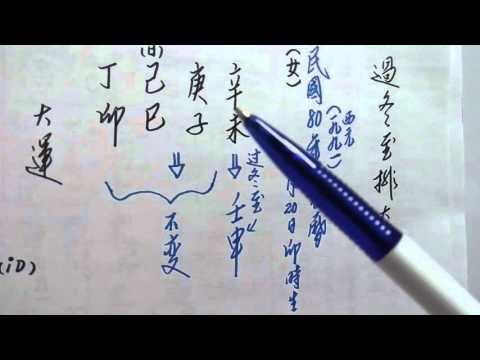 過冬至排
西元
(一九九一)
民國80年 曆 月20日卯時生
(女)
辛未
过冬至
壬申
庚子
(日)
己巳
丁卯
不变
大運
iD)